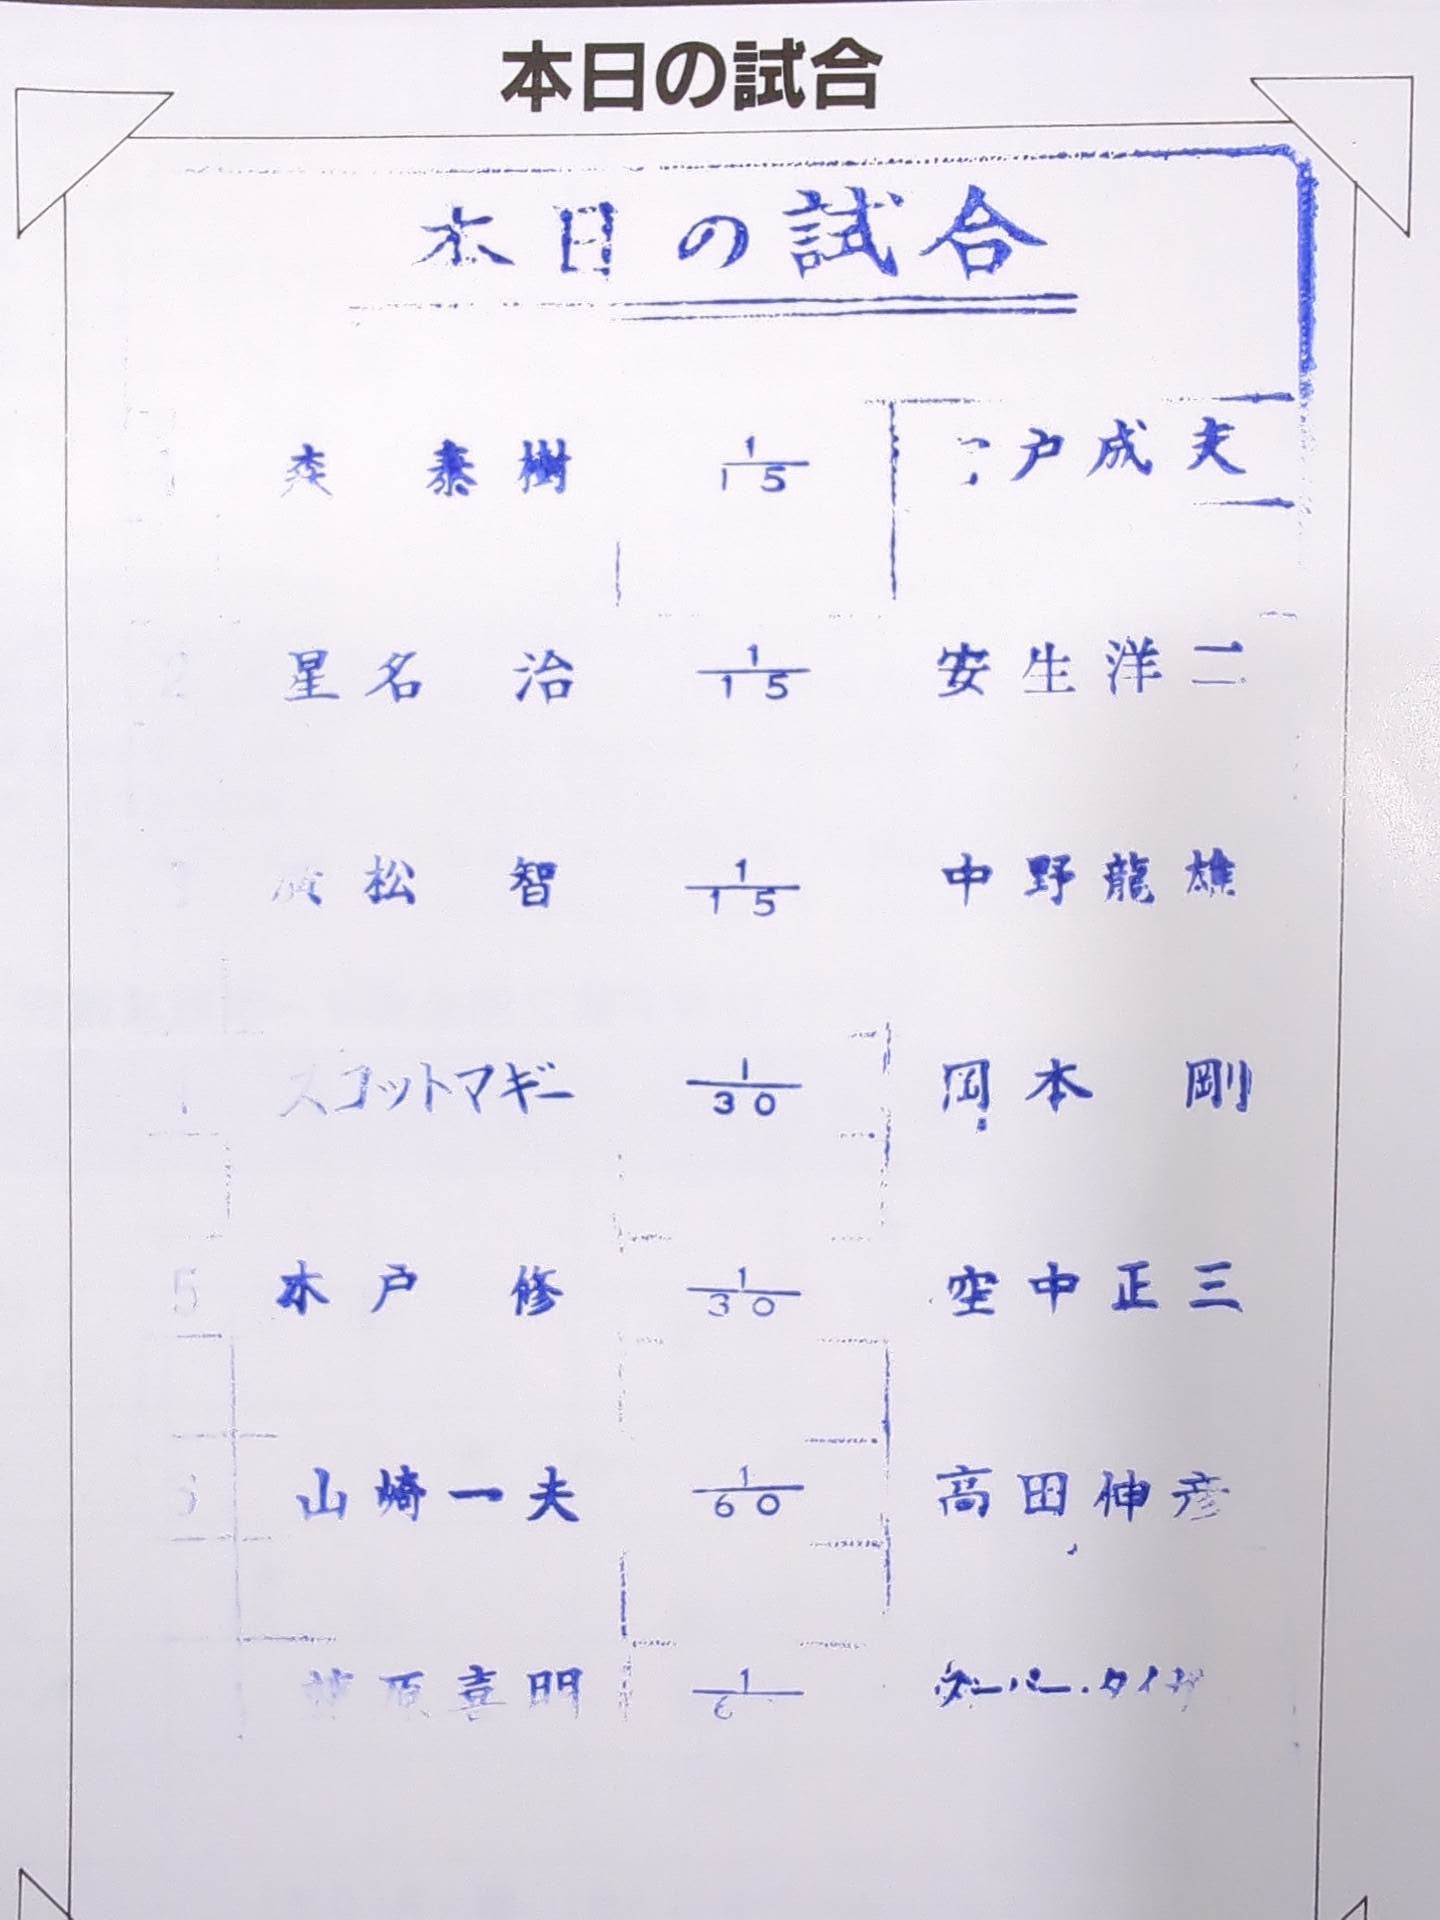 本日の試合
本日の試合
泰樹 1/15 戸成夫
2 星名 治 1/15 安生洋二
松 智 1/15 中野龍雄
スコットマギー 1/30 岡本 剛
5 木戸 修 1/30 空中正三
山崎一夫 1/60 高田伸彦
原喜明 1 スーパー・タイガ